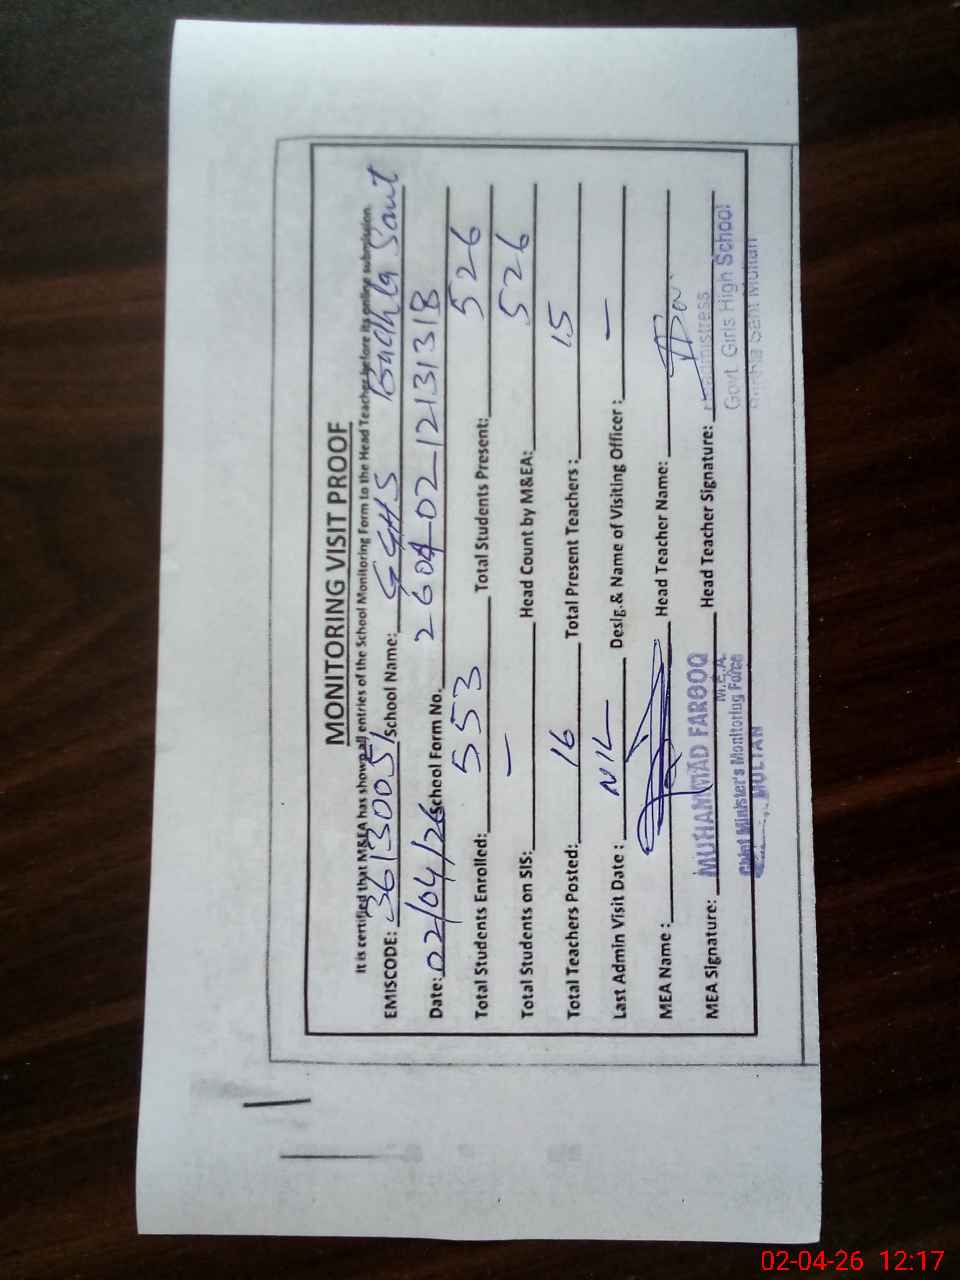 MONITORING VISIT PROOF
It is certified that M&EA has shown all entries of the School Monitoring Form to the Head Teacher before its online submission.
EMISCODE: 36130051 School Name: GGHS Buchla Sant
Date: 02/04/26 School Form No. 2604-02-12131318
Total Students Enrolled: 553 Total Students Present: 526
Total Students on SIS: — Head Count by M&EA: 526
Total Teachers Posted: 16 Total Present Teachers : 15
Last Admin Visit Date : NIL Desig.& Name of Visiting Officer : —
MEA Name : Head Teacher Name:
MEA Signature: Head Teacher Signature:
MUHAMMAD FAROOQ
M.E.A.
Chief Minister's Monitoring Force
MULTAN
Govt. Girls High School
Sant Multan
02-04-26 12:17